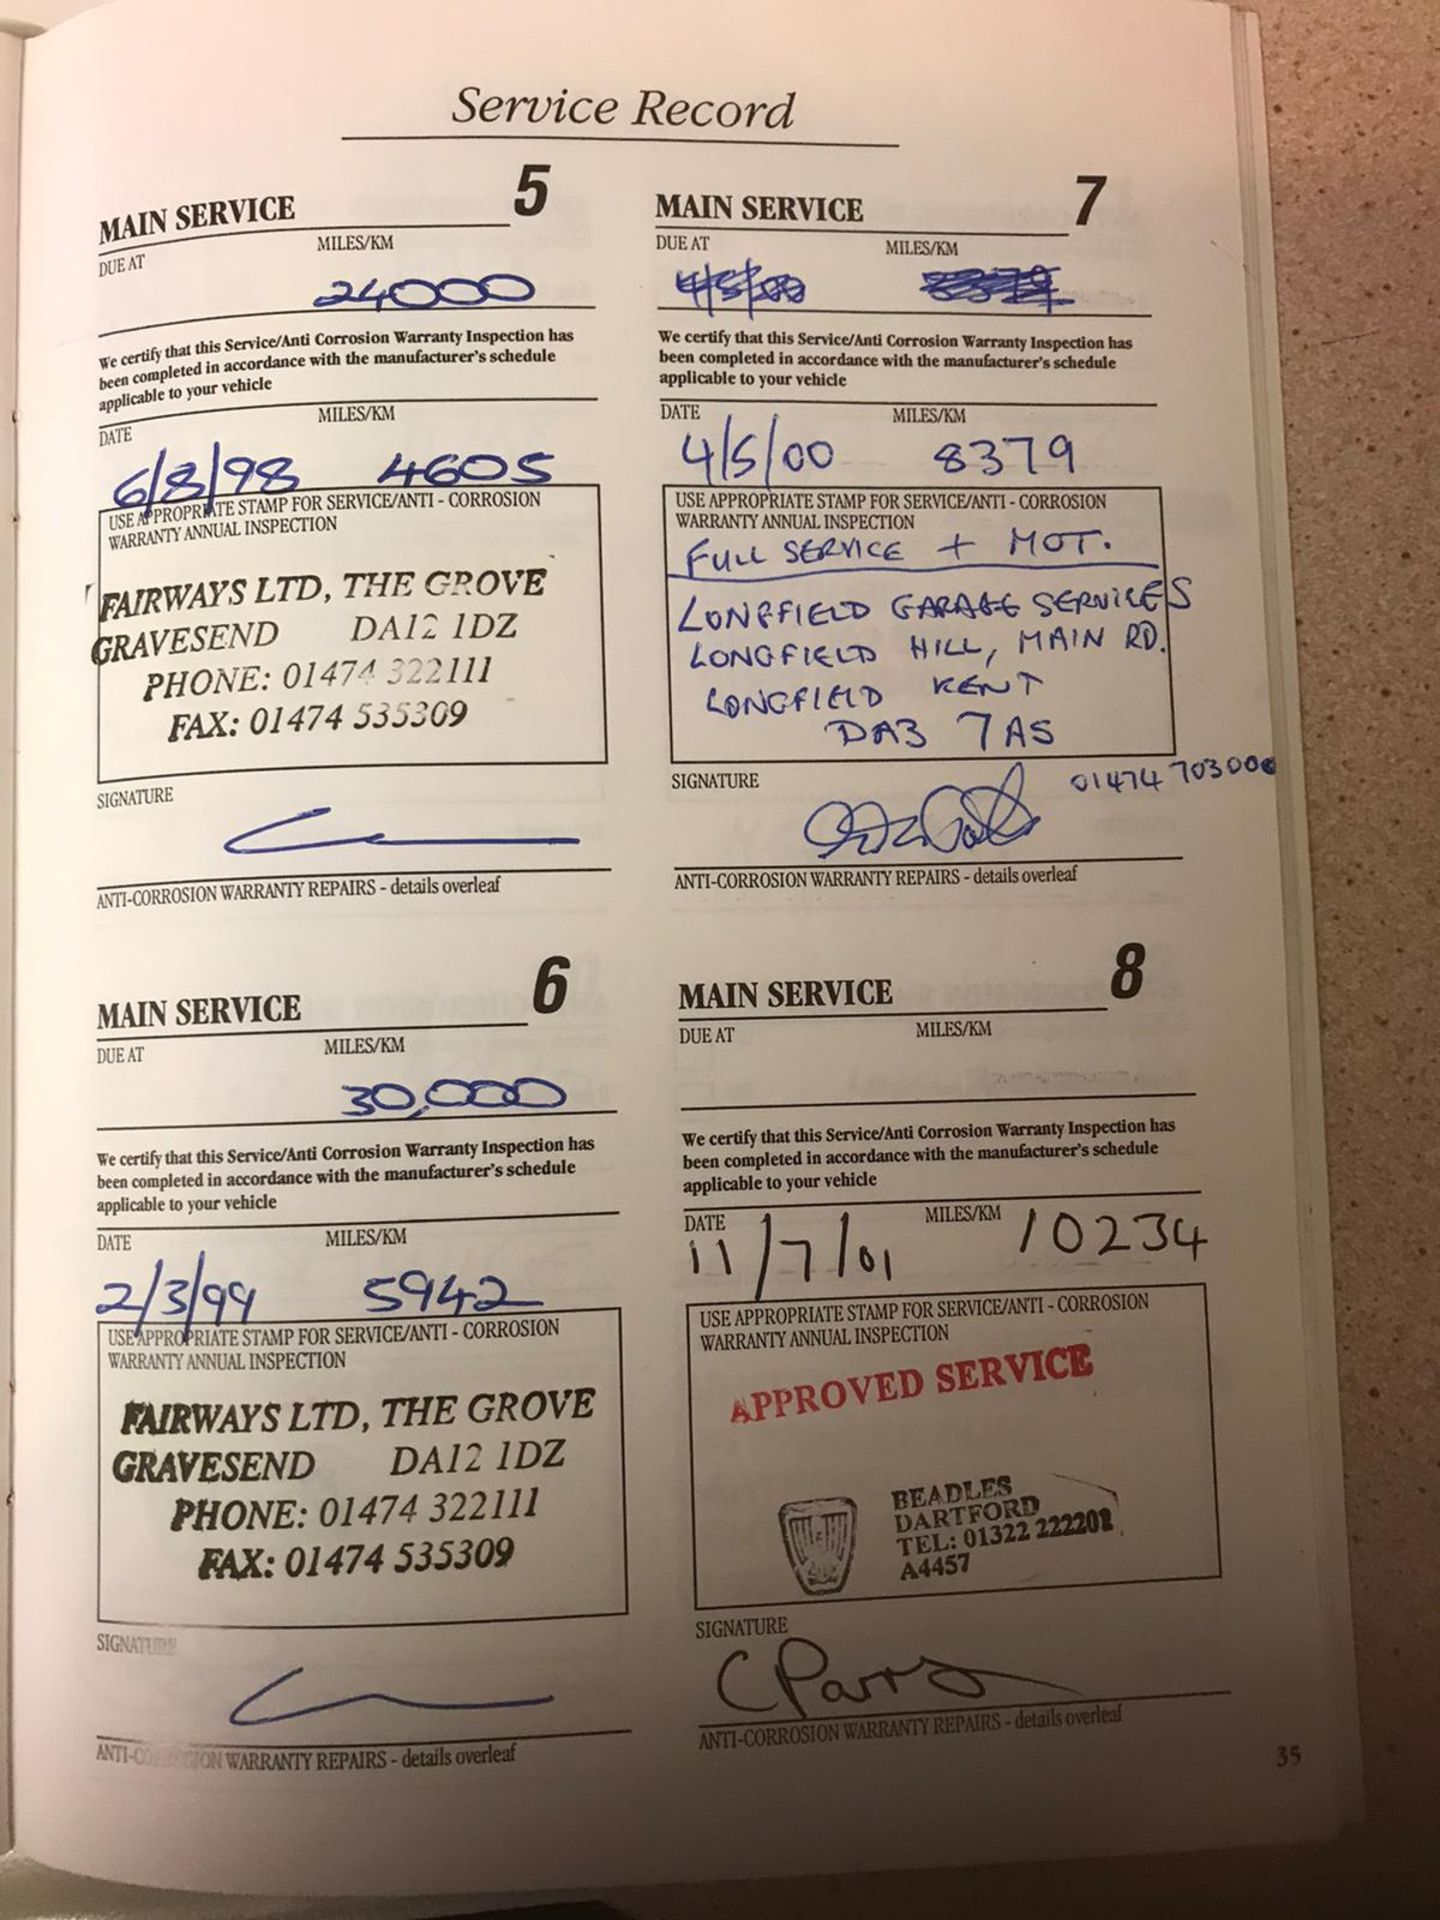 Service Record
MAIN SERVICE 5
DUE AT MILES/KM
24000
We certify that this Service/Anti Corrosion Warranty Inspection has
been completed in accordance with the manufacturer's schedule
applicable to your vehicle
DATE MILES/KM
6/8/98 4605
USE APPROPRIATE STAMP FOR SERVICE/ANTI - CORROSION
WARRANTY ANNUAL INSPECTION
FAIRWAYS LTD, THE GROVE
GRAVESEND DA12 1DZ
PHONE: 01474 322111
FAX: 01474 535309
SIGNATURE
ANTI-CORROSION WARRANTY REPAIRS - details overleaf
MAIN SERVICE 6
DUE AT MILES/KM
30,000
We certify that this Service/Anti Corrosion Warranty Inspection has
been completed in accordance with the manufacturer's schedule
applicable to your vehicle
DATE MILES/KM
2/3/99 5942
USE APPROPRIATE STAMP FOR SERVICE/ANTI - CORROSION
WARRANTY ANNUAL INSPECTION
FAIRWAYS LTD, THE GROVE
GRAVESEND DA12 1DZ
PHONE: 01474 322111
FAX: 01474 535309
SIGNATURE
ANTI-CORROSION WARRANTY REPAIRS - details overleaf
MAIN SERVICE 7
DUE AT MILES/KM
4/5/00 8379
We certify that this Service/Anti Corrosion Warranty Inspection has
been completed in accordance with the manufacturer's schedule
applicable to your vehicle
DATE MILES/KM
4/5/00 8379
USE APPROPRIATE STAMP FOR SERVICE/ANTI - CORROSION
WARRANTY ANNUAL INSPECTION
FULL SERVICE + MOT.
LONGFIELD GARAGE SERVICES
LONGFIELD HILL, MAIN RD.
LONGFIELD KENT
DA3 7AS
SIGNATURE 01474 703000
ANTI-CORROSION WARRANTY REPAIRS - details overleaf
MAIN SERVICE 8
DUE AT MILES/KM
We certify that this Service/Anti Corrosion Warranty Inspection has
been completed in accordance with the manufacturer's schedule
applicable to your vehicle
DATE MILES/KM
11/7/01 10234
USE APPROPRIATE STAMP FOR SERVICE/ANTI - CORROSION
WARRANTY ANNUAL INSPECTION
APPROVED SERVICE
BEADLES
DARTFORD
TEL: 01322 222202
A4457
SIGNATURE
C Parry
ANTI-CORROSION WARRANTY REPAIRS - details overleaf
35